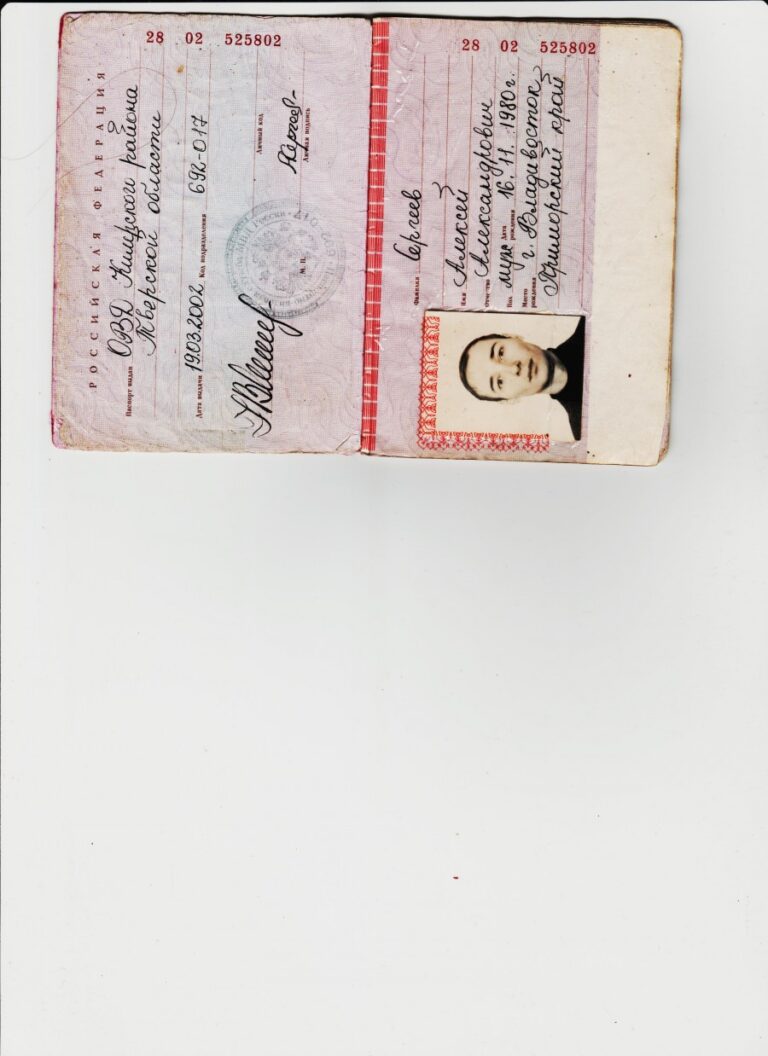 РОССИЙСКАЯ ФЕДЕРАЦИЯ
Паспорт выдан ОВД Кимрского района
Тверской области
Дата выдачи 19.03.2002 Код подразделения 692-017
Личный код
Личная подпись
М. П.
28 02 525802
Фамилия Сергеев
Имя Алексей
Отчество Александрович
Пол муж Дата рождения 16.11.1980г.
Место рождения г. Владивосток
Приморский край
28 02 525802